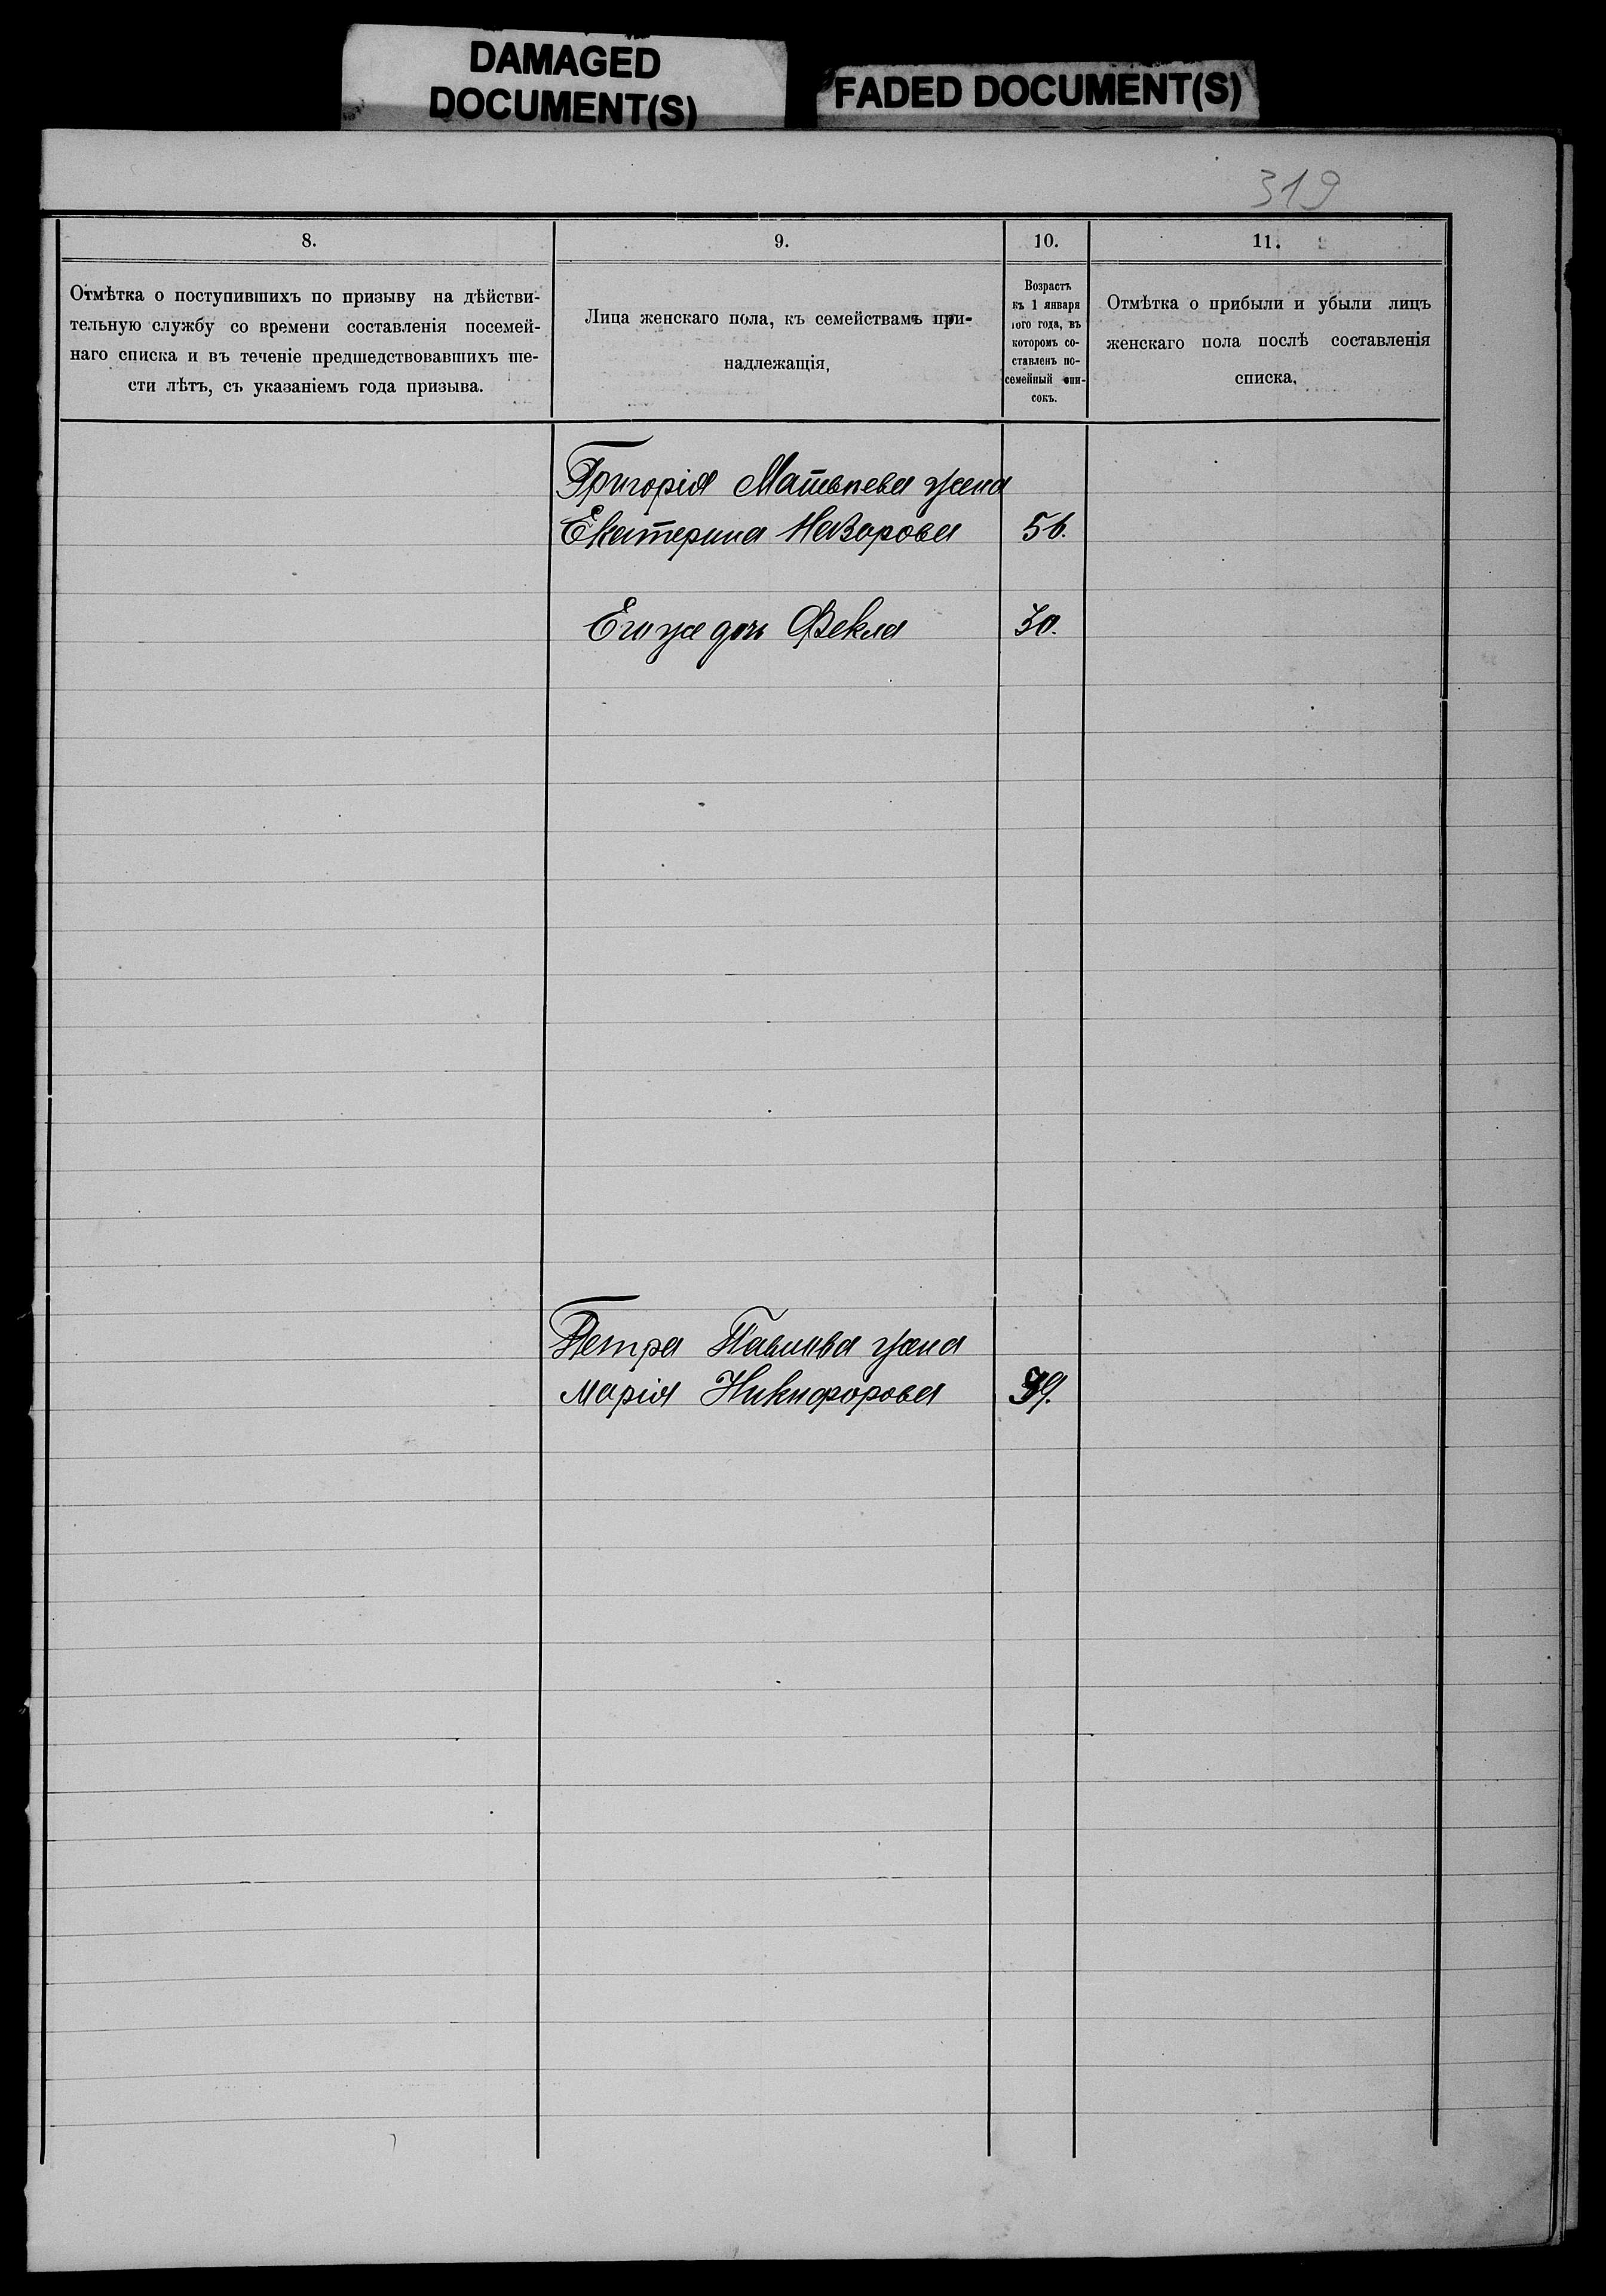 DAMAGED
DOCUMENT(S)
FADED DOCUMENT(S)
319
8.
9.
10.
11.
Отмѣтка о поступившихъ по призыву на дѣйстви-
тельную службу со времени составленія посемей-
наго списка и въ теченіе предшедствовавшихъ ше-
сти лѣтъ, съ указаніемъ года призыва.
Лица женскаго пола, къ семействамъ при-
надлежащія,
Возрастъ
къ 1 января
того года, въ
которомъ со-
ставленъ по-
семейный спи-
сокъ.
Отмѣтка о прибыли и убыли лицъ
женскаго пола послѣ составленія
списка.
Григорія Матвѣева жена
Екатерина Назарова 56.
Его же дочь Фекла 30.
Петра Павлова жена
Марія Никифорова 39.